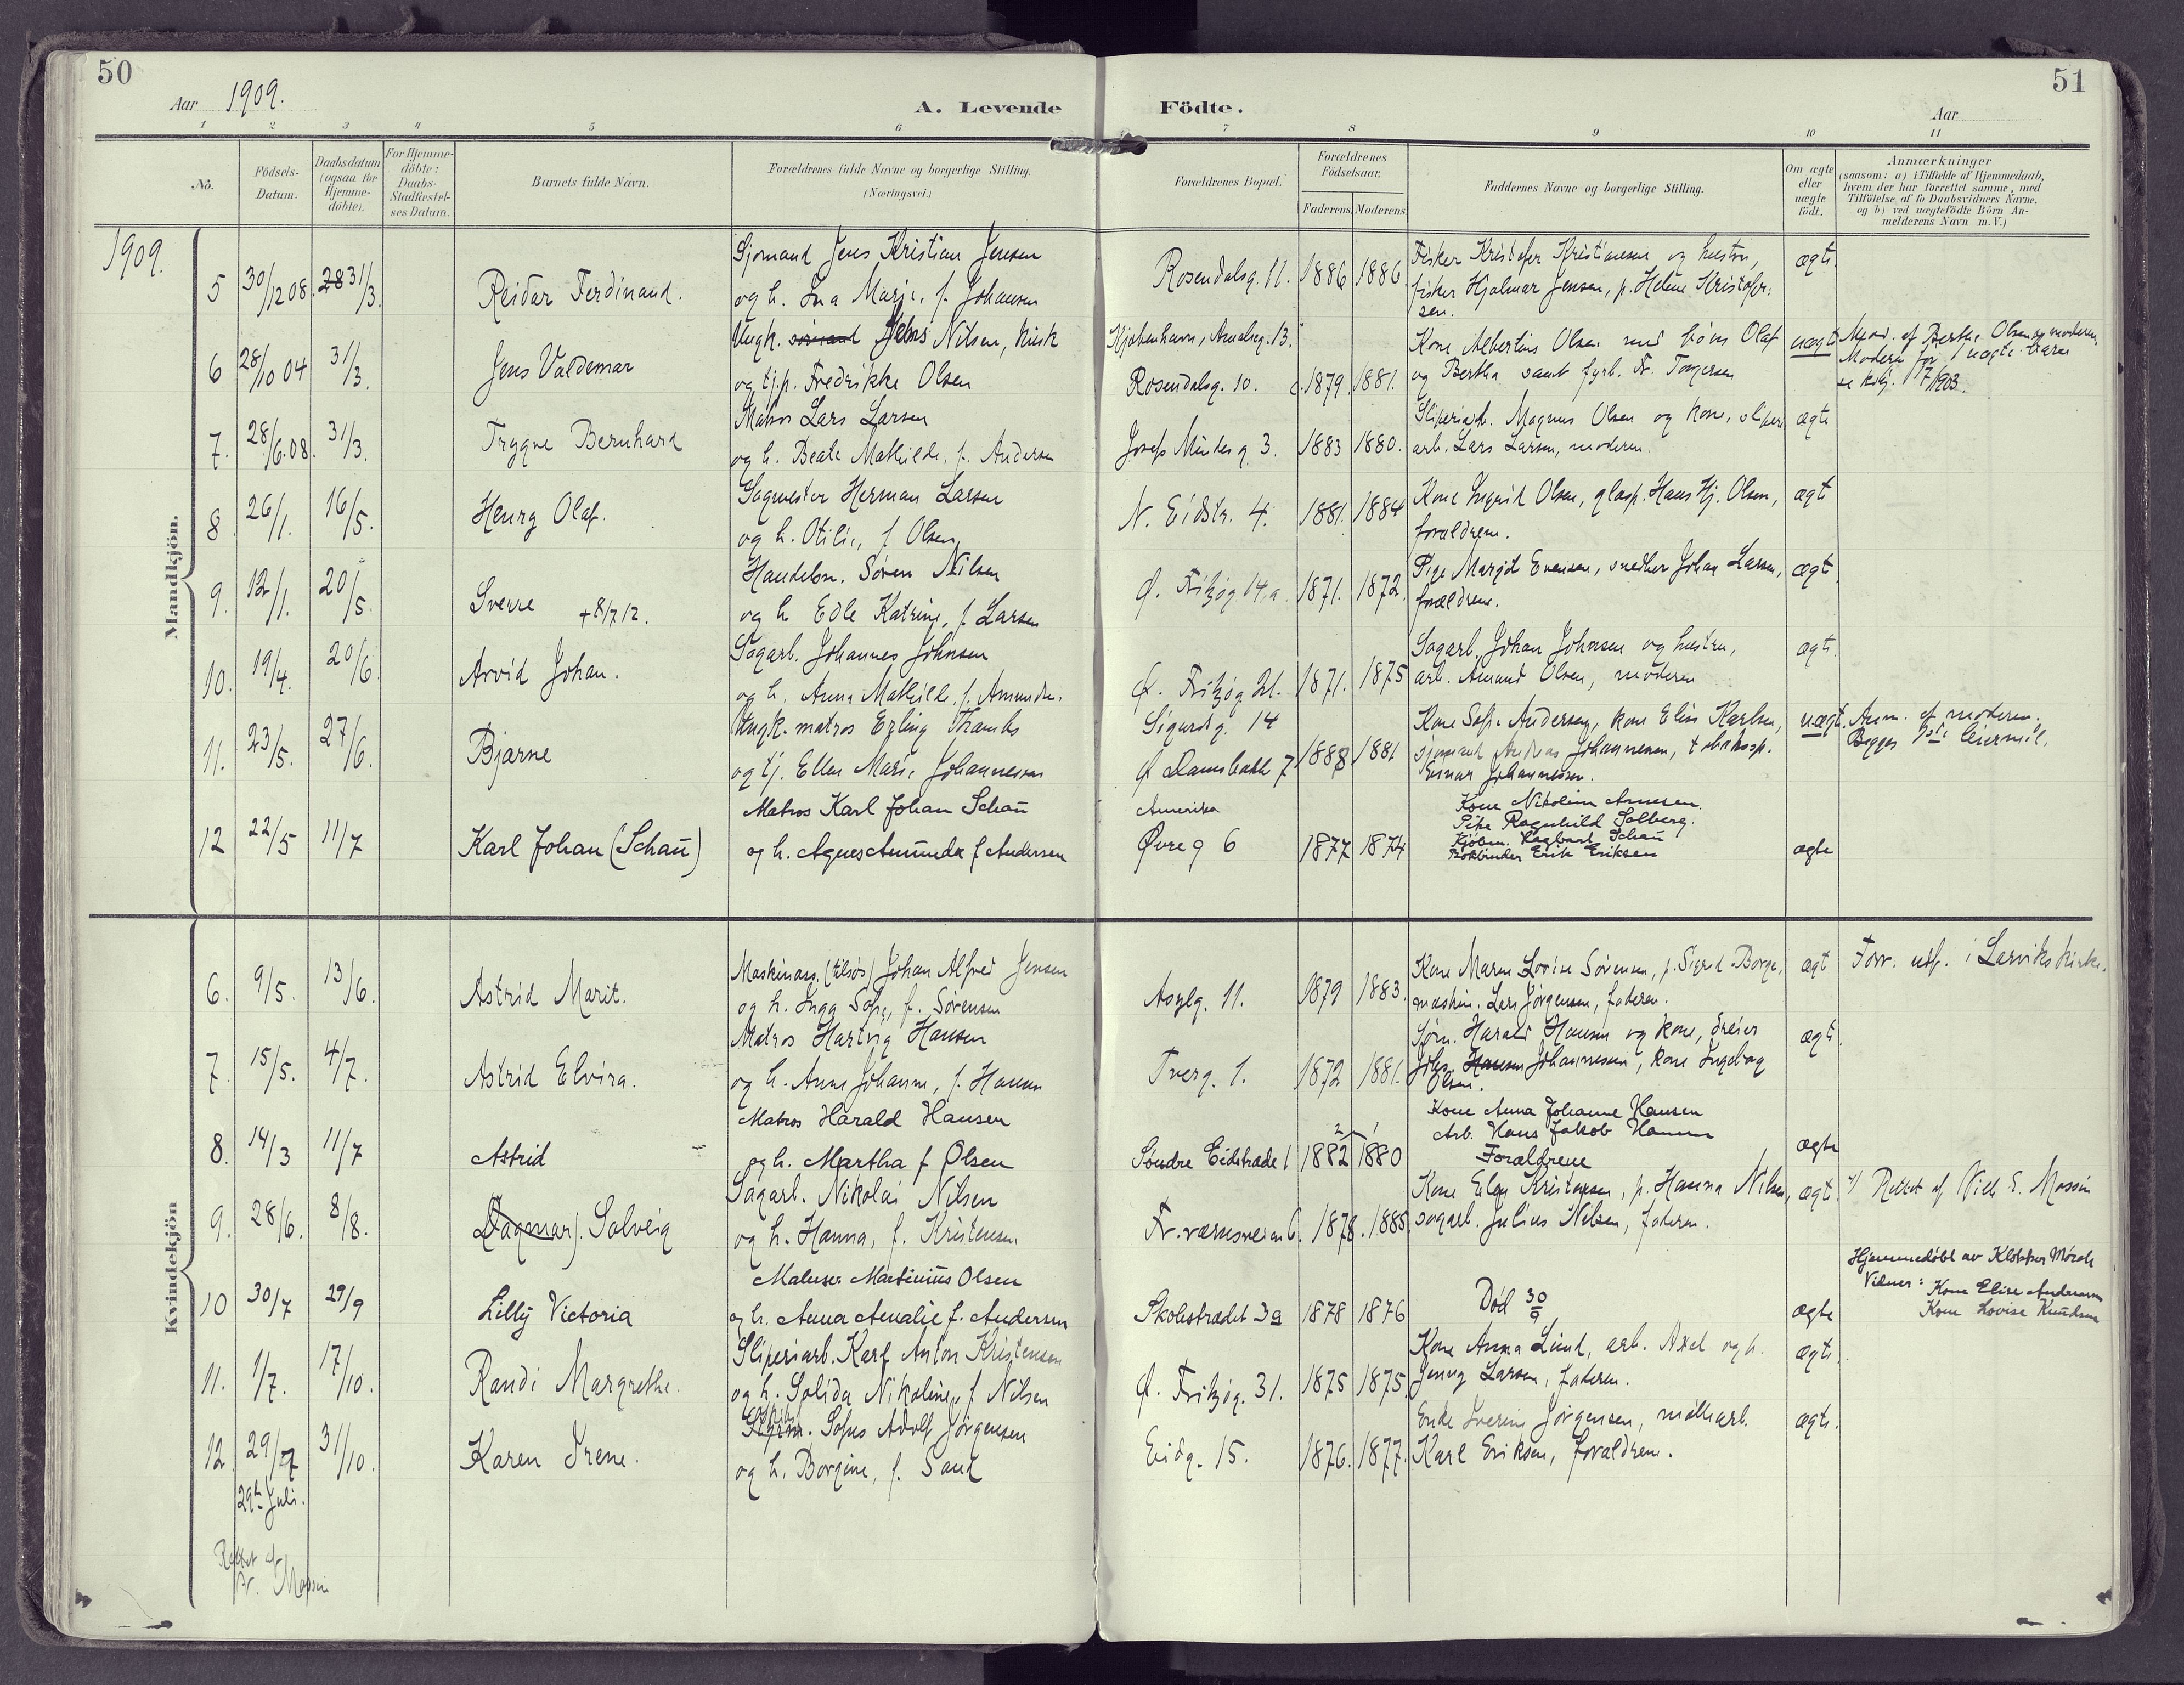 50
Aar 1909.
A. Levende Födte.
51
Aar
1 2 3 4 5 6 7 8 9 10 11
No.
Födsels-Datum.
Daabsdatum (ogsaa for Hjemme-döbte).
For Hjemme-döbte: Daabs-Stadfestel-ses Datum.
Barnets fulde Navn.
Forældrenes fulde Navne og borgerlige Stilling.
(Næringsvei.)
Forældrenes Bopæl.
Forældrenes Födselsaar.
Faderens. Moderens.
Faddernes Navne og borgerlige Stilling.
Om ægte eller uægte födt.
Anmærkninger
(saasom: a) i Tilfælde af Hjemmedaab,
hvem der har forrettet samme, med
Tilföielse af to Daabsvidners Navne.
og b) ved uægtefödte Börn An-
melderens Navn m. V.)
1909.
Mandkjön.
Sjömand Jens Kristian Jensen
5 30/12 08. 28 31/3. Reidar Ferdinand. og h. Ina Marje, f. Johansen
Rosendalsg. 11. 1886 1886.
Fisker Kristofer Kristiansen og hustru,
fisker Hjalmar Jensen, p. Helene Kristofer-
sen.
ægte.
Ungk. Jens Nilsen,
6 28/10 04 31/3. Jens Valdemar og tj.p. Fredrikke Olsen
Kjøbenhavn, Amalieg. 13.
Rosendalsg. 10. c. 1879. 1881.
Kone Albertine Olsen med Olaf
og Bertha samt fyrb. Fr. Torgersen
uægt.
af Berthe Olsen og moderen.
Moderen før 1 uægte barn
se kbg. 1/7 1903.
Matros Lars Larsen
7. 28/6.08. 31/3. Trygve Bernhard og h. Beate Mathilde, f. Andersen
Josefs Mindes g. 3. 1883 1880.
Sliperiarb. Magnus Olsen og kone, sliperi
arb. Lars Larsen, moderen.
ægte
Sagmester Herman Larsen
8 26/1. 16/5. Henry Olaf. og h. Otilie, f. Olsen,
N. Eidstr. 4. 1881. 1884
Kone Ingrid Olsen, glasp. Hans Hj. Olsen,
forældrene.
ægte
Handelsm. Søren Nilsen
9. 12/1. 20/5. Sverre +8/7 12. og h. Edle Katrine, f. Larsen
Ø. Fritzøg 14.a 1871. 1872.
Pige Margit Evensen, snedker Johan Larsen,
forældrene.
ægte.
Sagarb. Johannes Johnsen
10. 19/4. 20/6. Arvid Johan. og h. Anna Mathilde, f. Amundsn.
Ø. Fritzøg 21. 1871. 1875
Sagarb. Johan Johnsen og hustru,
arb. Amund Olsen, moderen
ægte.
Ungk. matros Erling Thambs
11. 23/5. 27/6. Bjarne og tj. Ellen Marie Johannesen
Sigurdg. 14
Ø Damsbakk 7 1888 1881
Kone Sofie Andersen, kone Elise Karlsen,
sjømand Andreas Johannesen, tobaksp.
Einar Johannessen.
uægt.
Anm. af moderen.
Begges 1ste leiermål.
Matros Karl Johan Schau
12 22/5 11/7 Karl Johan (Schau) og h. Agnes Amunda f Andersen
Amerika
Øvre g 6 1877 1874
Kone Nikoline Arnesen.
Pike Ragnhild Solberg.
Kjøbm. Hagbart Schau
Bokbinder Erik Eriksen
ægte
Kvindekjön
Maskinass. (tilsøs) Johan Alfred Jensen
6. 9/5. 13/6. Astrid Marit. og h. Inga Sofie, f. Sørensen
Asylg. 11. 1879 1883.
Kone Maren Lovise Sørensen, p. Sigrid Borge,
maskin. Lars Jørgensen, faderen.
ægt
Forr. udf. i Larviks kirke.
Matros Hartvig Hansen
7. 15/5. 4/7. Astrid Elvira. og h. Anna Johanne, f. Hansen
Tverg. 1. 1872 1881.
Sjøm. Harald Hansen og kone, dreier
Johs. Hansen Johannessen, kone Ingeborg
Olsen.
ægte.
Matros Harald Hansen
8. 14/3 11/7 Astrid og h. Martha f Olsen
Søndre Eidstræde 1 1882 1880
2 1
Kone Anna Johanne Hansen
Arb. Hans Jakob Hansen
Forældrene
ægte
Sagarb. Nikolai Nilsen
9. 28/6. 8/8. Dagmar). Solveig og h. Hanna, f. Kristensen
Fr.værnsveien 6. 1878. 1885.
Kone Elen Kristensen, p. Hanna Nilsen,
sagarb. Julius Nilsen, faderen.
ægt.
Rettet af Vilh E. Massin
Malersv Martinius Olsen
10 30/7 29/9 Lilly Victoria og h. Anna Amalie f. Andersen
Skolestrædet 3a 1878 1876
Død 30/9
ægte
Hjemmedöbt av Klokker Mørch
Vidner: Kone Elise Andersen
Kone Lovise Knudsen
Sliperiarb. Karl Anton Kristensen
11. 1/7. 17/10. Randi Margrethe. og h. Solida Nikoline, f Nilsen
Ø. Fritzøg. 31. 1875 1875
Kone Anna Lund, arb. Axel og h.
Jenny Larsen, faderen.
ægte.
Sofus Adolf Jørgensen
12. 29/7 31/10. Karen Irene. og h. Borgine, f. Sand
29de Juli.
Eidg. 15. 1876. 1877.
Enke Iverine Jørgensen, møllearb.
Karl Eriksen, forældrene.
ægte.
Rettet af
Massin